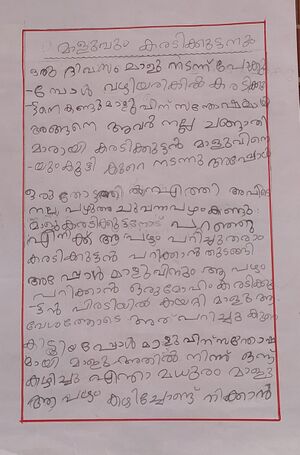 മാളുവും കരടിക്കുട്ടനും
ഒരു ദിവസം മാളു നടന്ന് പോകു
-മ്പോൾ വഴിയരികിൽ കരടിക്കു
-ട്ടനെ കണ്ടു മാളുവിന് സന്തോഷമായി
അങ്ങനെ അവർ നല്ല ചങ്ങാതി
മാരായി കരടിക്കുട്ടൻ മാളുവിനെ
-യുംകൂട്ടി കുറെ നടന്നു അപ്പോൾ
ഒരു തോട്ടത്തിൽ എത്തി അവിടെ
നല്ല പഴുത്ത ചുവന്നപഴം കണ്ടു
മാളു കരടിക്കുട്ടനോട് പറഞ്ഞു
എനിക്ക് ആ പഴം പറിച്ചുതരാം
കരടിക്കുട്ടൻ പറിക്കാൻ തുടങ്ങി
അപ്പോൾ മാളുവിനും ആ പഴം
പറിക്കാൻ ഒരുമോഹം കരടിക്കു
-ട്ടൻ പിരടിയിൽ കയറി മാളു ആ
വേഗത്തോടെ അത് പറിച്ചു
കിട്ടിയപ്പോൾ മാളുവിന് സന്തോഷ
മായി മാളു അതിൽ നിന്ന് ഒന്ന്
കഴിച്ചു എന്താ മധുരം മാളു
ആ പഴം കഴിച്ചോണ്ട് നിക്കാൻ